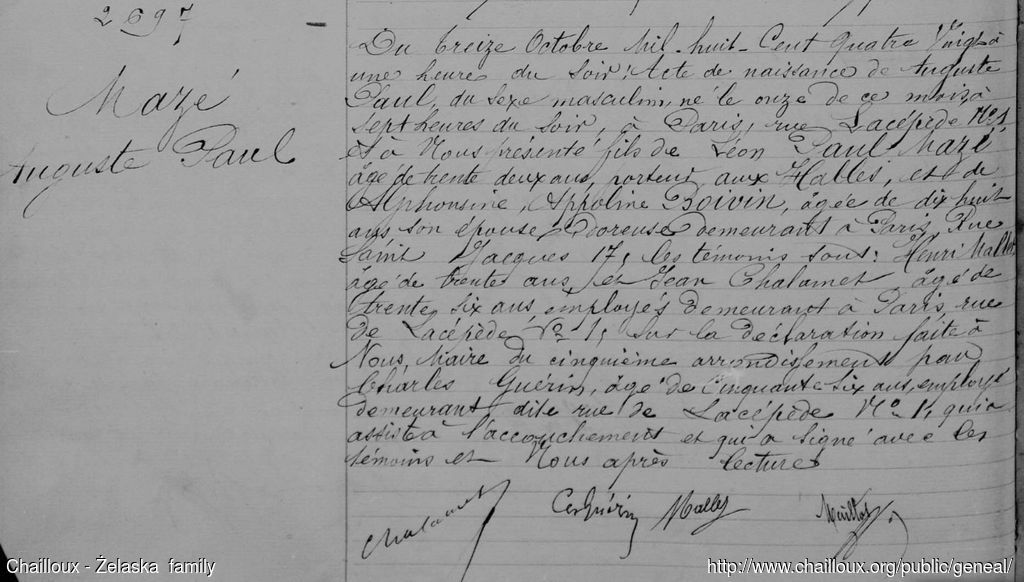 2697
Mazé
Auguste Paul
Du treize Octobre Mil-huit-Cent quatre Vingt à
une heure du Soir: Acte de naissance de Auguste
Paul, du sexe masculin, né le onze de ce mois à
sept heures du soir, à Paris, rue Lacépède No 1,
Et à Nous présenté fils de Léon Paul Mazé
âgé de trente deux ans, porteur aux Halles, et de
Alphonsine, Appoline Boivin, âgée de dix huit
ans son épouse, Doreuse demeurant à Paris, Rue
Saint Jacques 17, les témoins sont: Henri
âgé de trente ans, et Jean Chalamet âgé de
trente six ans, employés demeurant à Paris, rue
de Lacépède No 1, sur la déclaration faite à
Nous, Maire du cinquième arrondissement par
Charles Guerin, âgé de Cinquante six ans, employé
demeurant dite rue de Lacépède No 1, qui a
assisté à l'accouchement et qui a signé avec les
témoins et Nous après lecture
Chalamet Guérin
Chailloux - Żelaska family
http://www.chailloux.org/public/geneal/